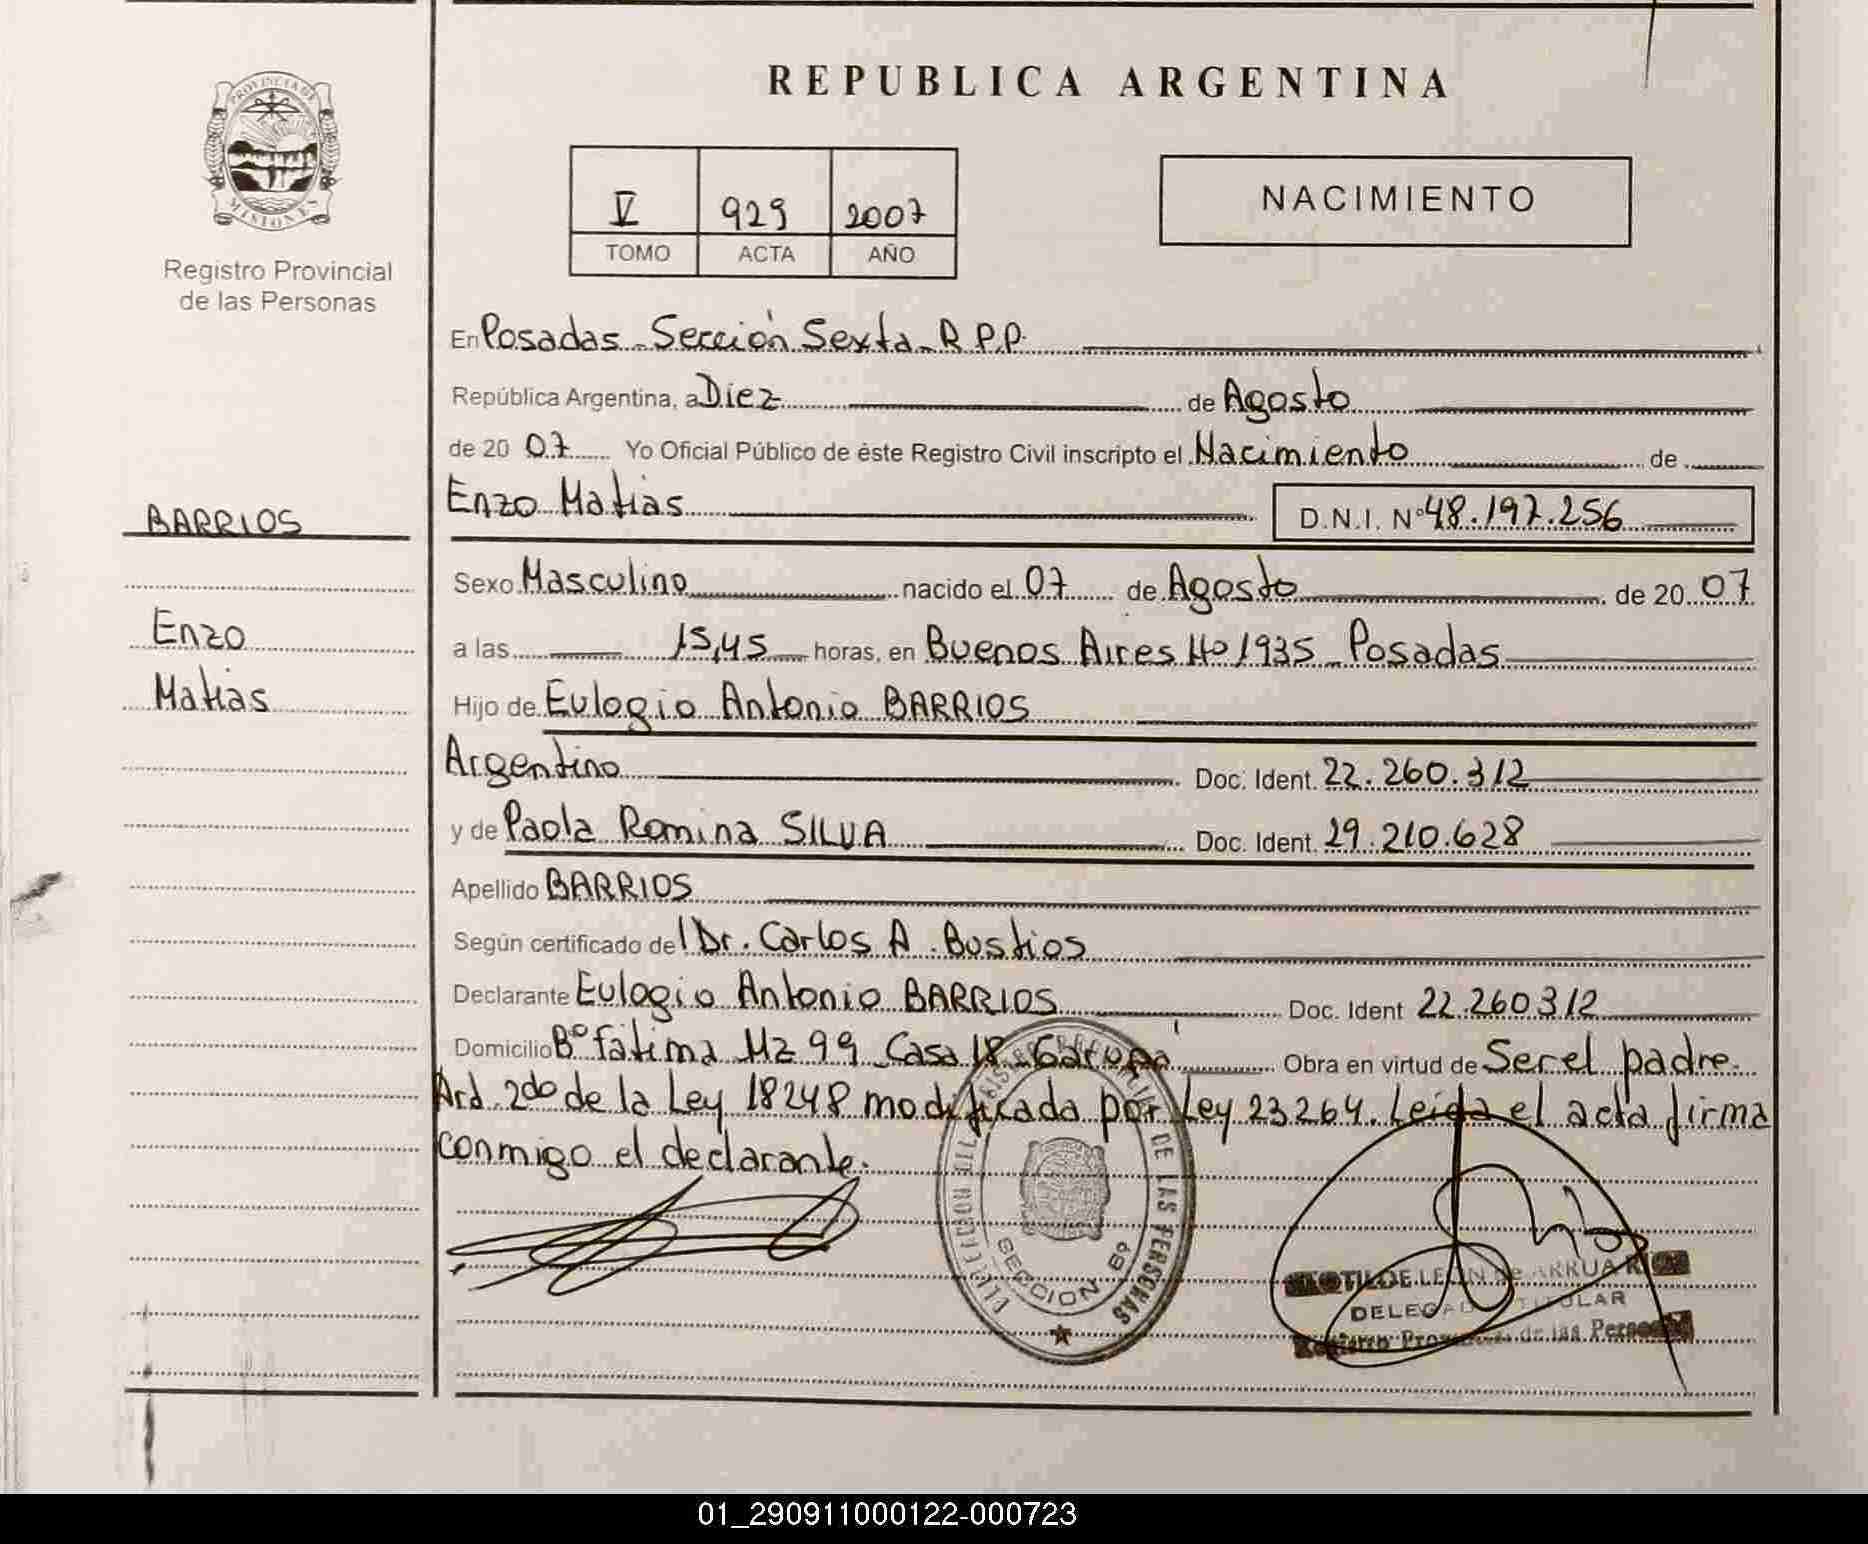 REPUBLICA ARGENTINA
PROVINCIA DE
MISIONES
Registro Provincial
de las Personas
V 929 2007
TOMO ACTA AÑO
NACIMIENTO
BARRIOS
Enzo
Matias
En Posadas - Sección Sexta - R.P.P.
República Argentina, a Diez de Agosto
de 20 07 Yo Oficial Público de éste Registro Civil inscripto el Nacimiento de
Enzo Matias D.N.I. Nº 48.197.256
Sexo Masculino nacido el 07 de Agosto de 20 07
a las 15,45 horas, en Buenos Aires Nº 1935 - Posadas
Hijo de Eulogio Antonio BARRIOS
Argentino Doc. Ident. 22.260.312
y de Paola Romina SILVA Doc. Ident. 29.210.628
Apellido BARRIOS
Según certificado del Dr. Carlos A. Bustios
Declarante Eulogio Antonio BARRIOS Doc. Ident 22.260312
Domicilio Bº Fátima Mz 99 Casa 18 - Garupá Obra en virtud de Ser el padre.
Art. 2do de la Ley 18248 modificada por Ley 23264. Leida el acta firma
conmigo el declarante.
DE LAS PERSONAS
SECCION
CLOTILDE LEON de ARRUA
DELEGADA TITULAR
Registro Provincial de las Personas
01_290911000122-000723